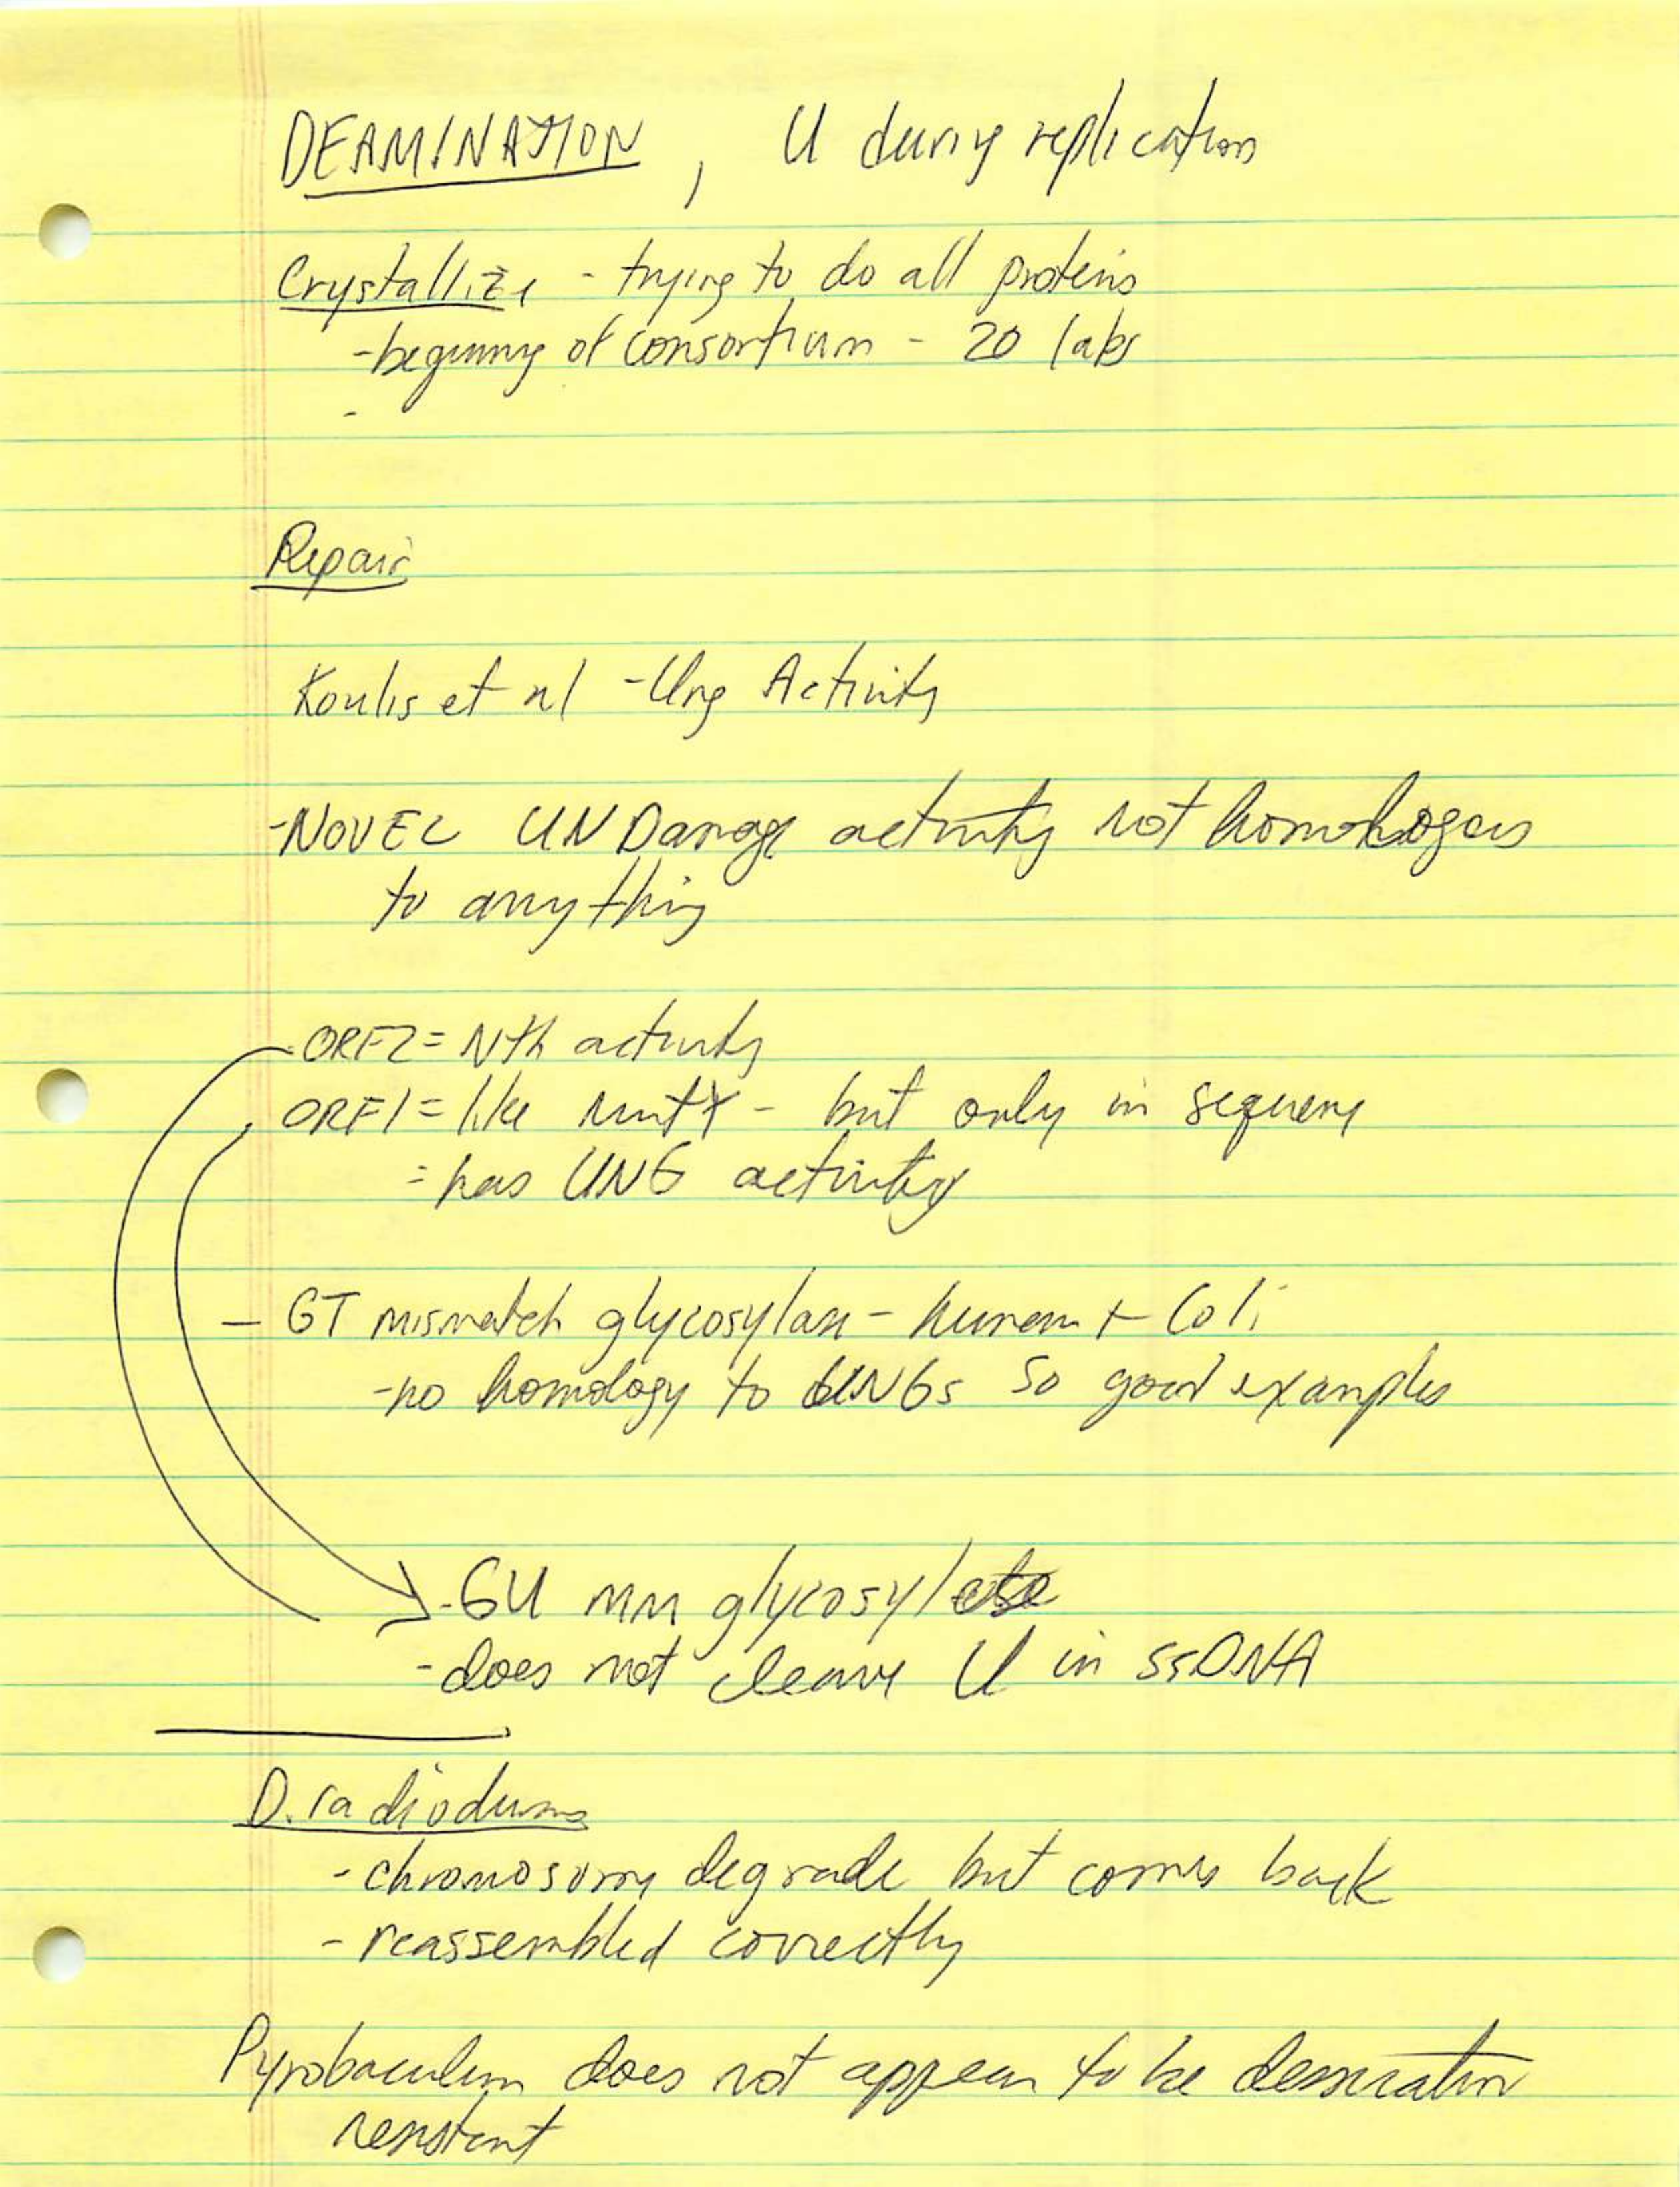 DEAMINATION, U during replication
Crystallize - trying to do all proteins
- beginning of consortium - 20 labs
-
Repair
Koulis et al - Ung Activity
- NOVEL UN Damage activity not homologous
to anything
- ORF2 = Nth activity
ORF1 = like mutY - but only in sequence
= has UNG activity
- GT mismatch glycosylase - human + Coli
- no homology to UNGs so good examples
- GU MM glycosylase
- does not cleave U in ssDNA
D. radiodurans
- chromosome degrade but comes back
- reassembled correctly
Pyrobaculum does not appear to be desiccation
resistant